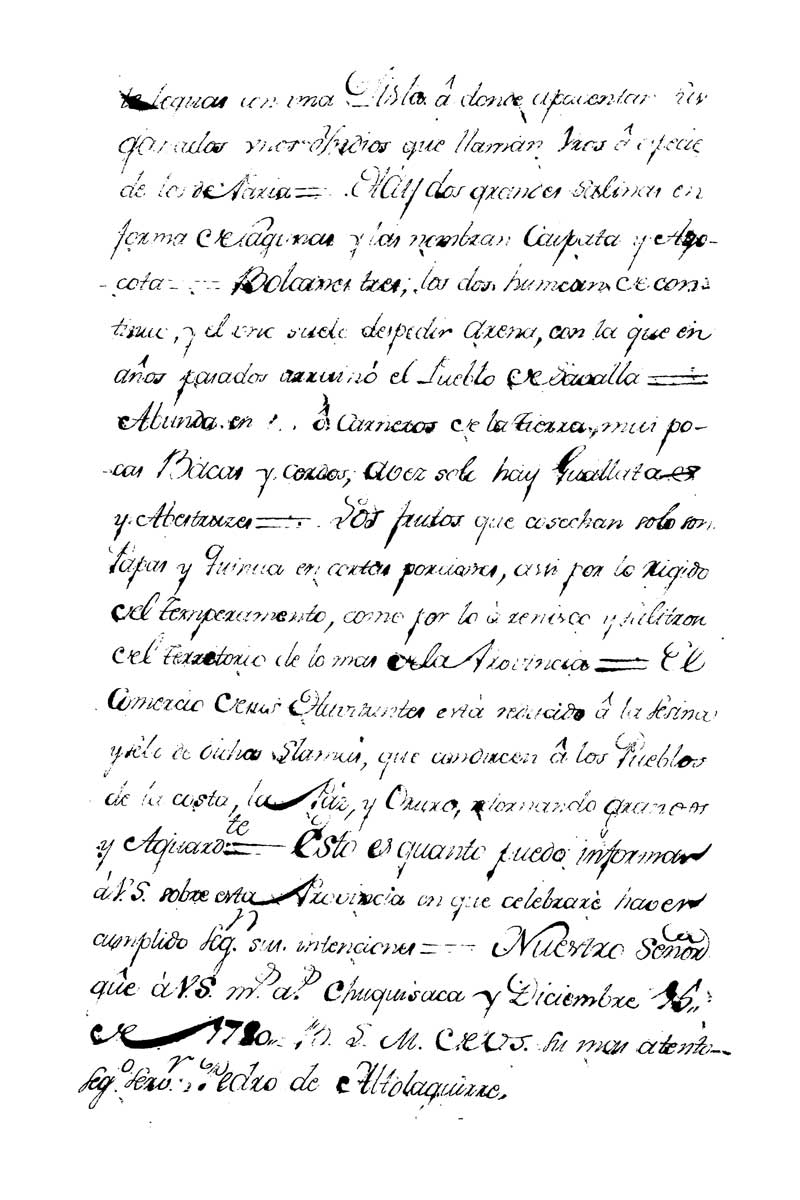 te leguas con una Ysla â donde apacentan sus
ganados unos Yndios que llaman Uros â especie
de los de Paria = Hay dos grandes salinas en
forma de lagunas y las nombran Caipata y
cota = Bolcanes tres, los dos humean de con=
tinuo, y el uno suele despedir arena, con la que en
años pasados arruinó el Pueblo de Savalla =
Abunda en â Carneros de la tierra, mui po-
cas Bacas y cerdos, avez solo hay Guallatas
y Abestruzes = Los frutos que cosechan solo son
Papas y Quinua en cortas porciones, assi por lo rigido
del temperamento, como por lo arenisco y salitroso
del territorio de lo mas de la Provincia = El
Comercio de sus Havitantes está reducido â la sesina
y sebo de dichas Llamas, que conducen â los Pueblos
de la costa, la Paz, y Oruro, retornando granos
y Aguard.te = Esto es quanto puedo informar
á V.S. sobre esta Provincia en que celebraré haver
cumplido seg.n sus intenciones = Nuestro Señor
güe á V.S. m.s a.s Chuquisaca y Diciembre 15,,
de 1780,, B. L. M. de V.S. su mas atento
seg.o serv.r Pedro de Altolaguirre.